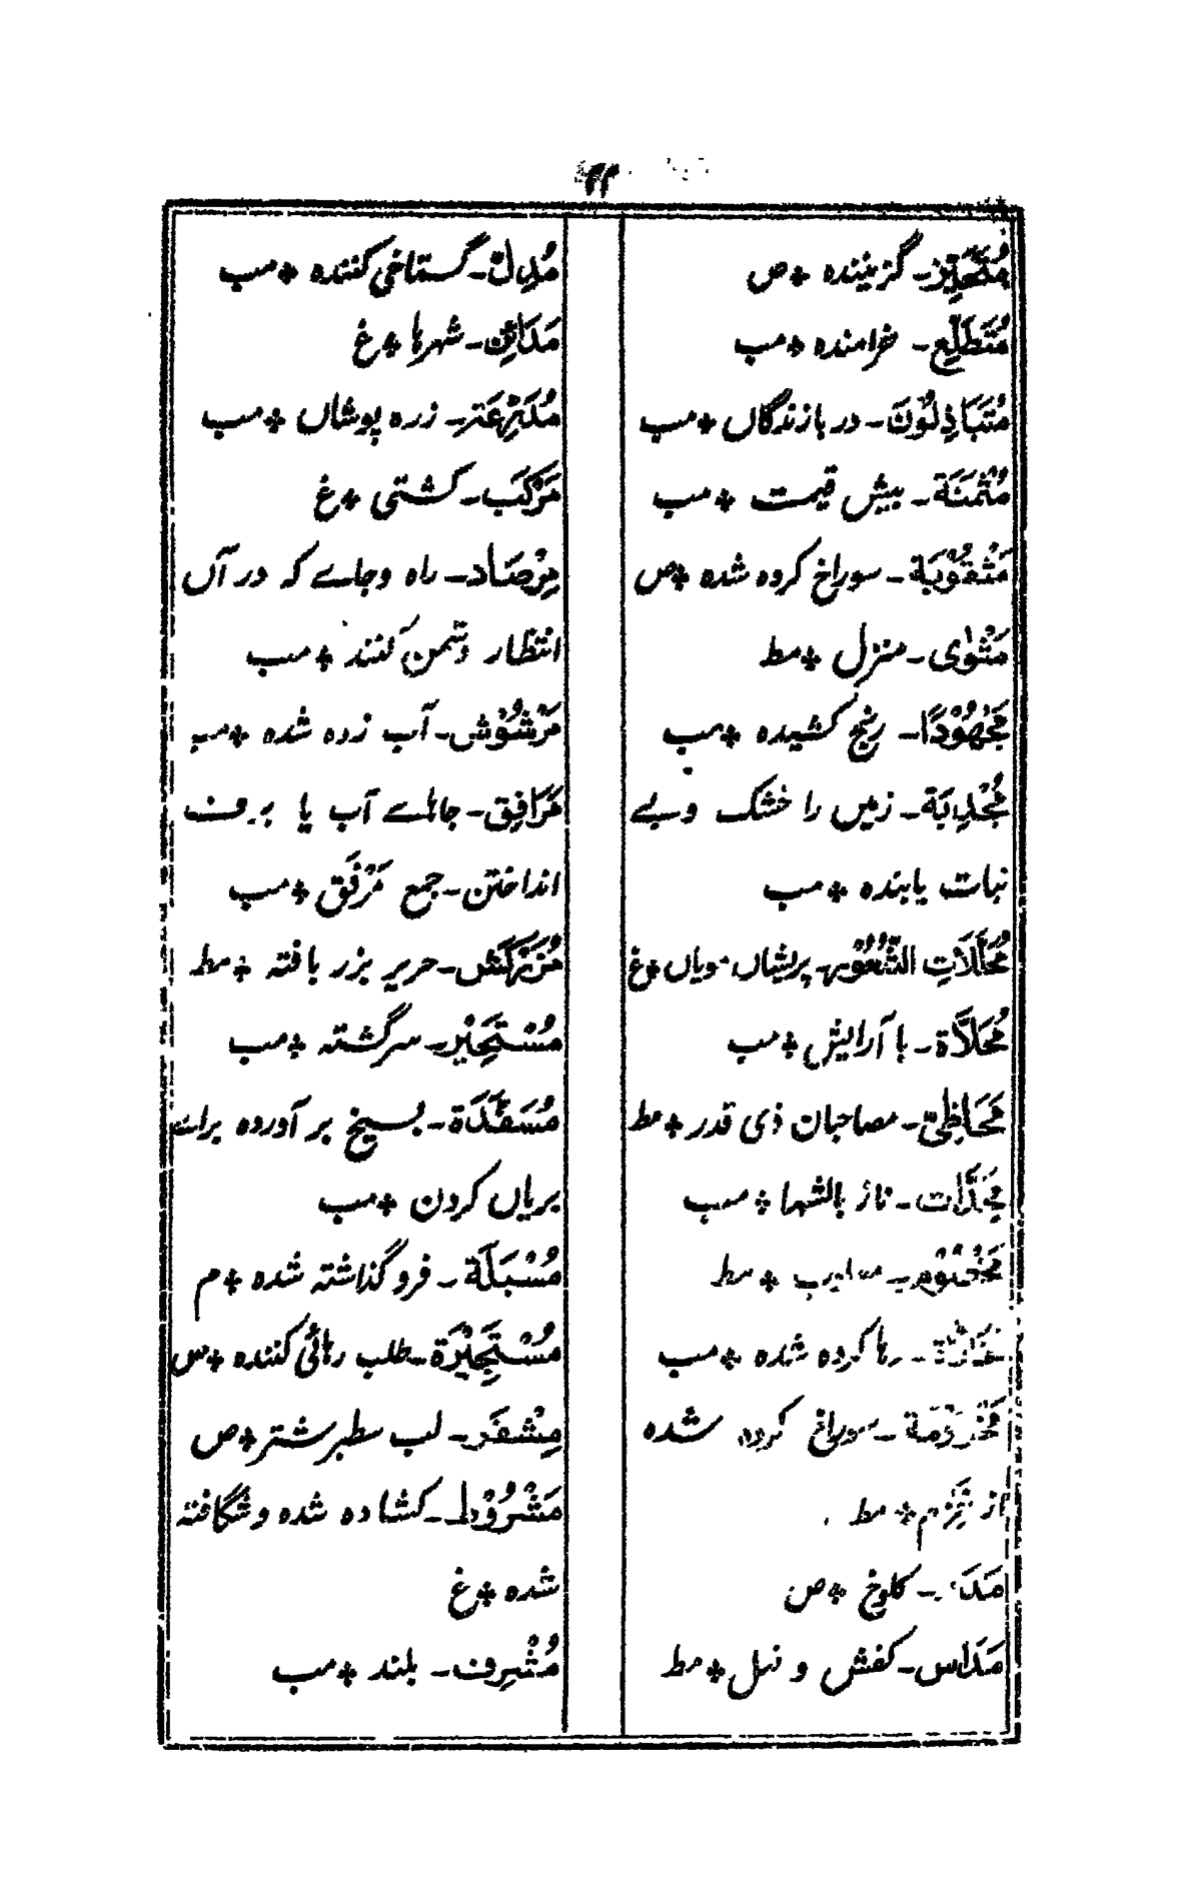 مُتَحَيِّز۔ گزینندہ ✤ ص
مُتَطَلِّع۔ خرامندہ ✤ مب
مُتَبَاذِلُوْنَ۔ در بازندگاں ✤ مب
مُثْمَنَة۔ بیش قیمت ✤ مب
مَثْقُوْبَة۔ سوراخ کردہ شدہ ✤ ص
مَثْوٰی۔ منزل ✤ مط
مَجْهُوْدًا۔ رنج کشیدہ ✤ مب
مُجْدِبَة۔ زمیں را خشک و بے
نبات یابندہ ✤ مب
مُحَلَّلَاتِ الشُّعُوْر۔ پریشاں مویاں ✤ غ
مُحَلَّاة۔ با آرایش ✤ مب
مَحَاظِیّ۔ مصاحبان ذی قدر ✤ مط
مِخَدَّات۔ ناز بالشہا ✤ مب
مَخْتُوْم۔ ✤ مط
رہا کردہ شدہ ✤ مب
مَخْزُوْمَة۔ سوراخ کردہ شدہ
از خَزْم ✤ مط
کلوخ ✤ ص
مَدَاس۔ کفش و نعل ✤ مط
مُدِلّ۔ گستاخی کنندہ ✤ مب
مَدَائِن۔ شہرہا ✤ غ
مُدَّرِعَة۔ زرہ پوشاں ✤ مب
مَرْکَب۔ کشتی ✤ غ
مِرْصَاد۔ راہ و جاے کہ در آں
انتظار دشمن کنند ✤ مب
مَرْشُوْش۔ آب زدہ شدہ ✤ مب
مَرَافِق۔ جاہاے آب یا برف
انداختن۔ جمع مَرْفَق ✤ مب
مُزَرْکَش۔ حریر بزر بافتہ ✤ مط
مُسْتَحِیْر۔ سرگشتہ ✤ مب
مُسَفَّدَة۔ بسیخ بر آوردہ براے
بریاں کردن ✤ مب
مُسْبَلَة۔ فرو گذاشتہ شدہ ✤ م
مُسْتَجِیْرَة۔ طلب رہائی کنندہ ✤ س
مِشْفَر۔ لب سطبر شتر ✤ ص
مَشْرُوْط۔ کشادہ شدہ و شگافتہ
شدہ ✤ غ
مُشْرِف۔ بلند ✤ مب